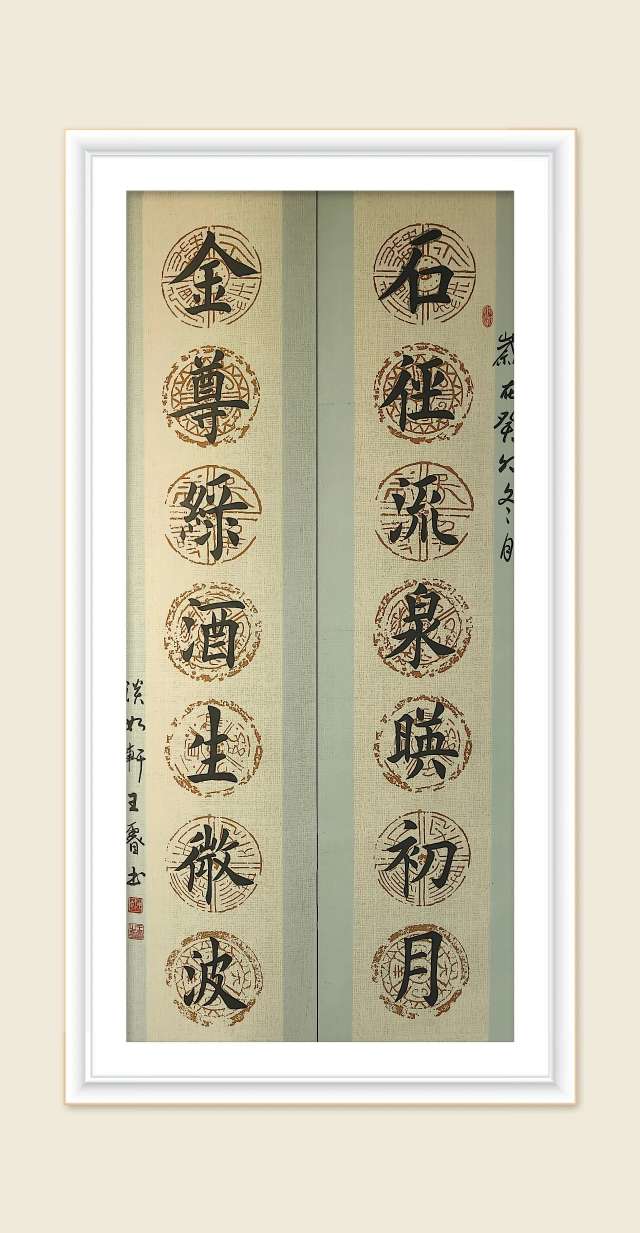 石徑流泉暎初月
歲在癸卯冬月
金尊綠酒生微波
淡如軒王書